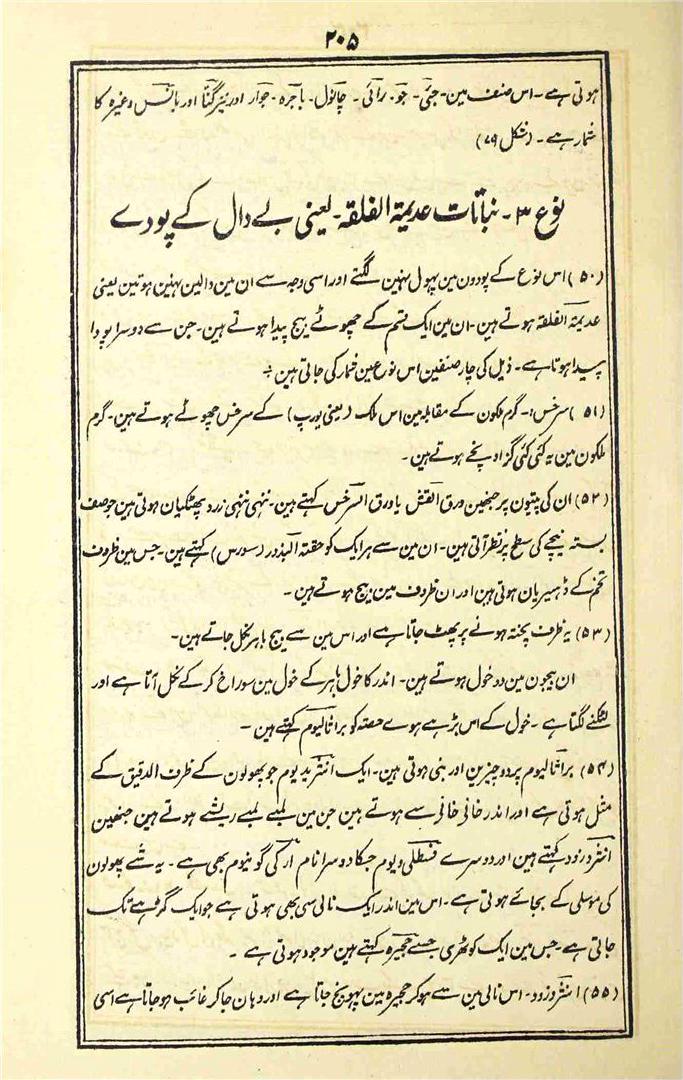 ۲۰۵
ہوتی ہے۔ اس صنف مین۔ جئی۔ جو۔ رائی۔ چانول۔ باجرہ۔ جوار اور نیز گنّا اور بانس وغیرہ کا
شمار ہے۔ (شکل ۷۹)
نوع ۳۔ نباتات عدیمۃ الفلقہ۔ یعنی بے دال کے پودے
(۵۰) اس نوع کے پودون مین پھول نہین لگتے اور اسی وجہ سے ان مین دالین نہین ہوتین یعنی
عدیمۃ الفلقہ ہوتے ہین۔ ان مین ایک قسم کے چھوٹے بیج پیدا ہوتے ہین۔ جن سے دوسرا پودا
پیدا ہوتا ہے۔ ذیل کی چار صنفین اس نوع مین شمار کی جاتی ہین
(۵۱) سرخس:۔ گرم ملکون کے مقابلہ مین اس ملک (یعنی یورپ) کے سرخس چھوٹے ہوتے ہین۔ گرم
ملکون مین یہ کئی کئی گز اونچے ہوتے ہین۔
(۵۲) ان کی پتیون پر جنھین ورق القفض یا ورق السرخس کہتے ہین۔ ننھی ننھی زرد پھٹکیان ہوتی ہین جو صف
بستہ نیچے کی سطح پر نظر آتی ہین۔ ان مین سے ہر ایک کو حقتہ البذور (سورس) کہتے ہین۔ جس مین ظروف
تخم کے ڈھیریان ہوتی ہین اور ان ظروف مین بیج ہوتے ہین۔
(۵۳) یہ ظرف پختہ ہونے پر پھٹ جاتا ہے اور اس مین سے بیج باہر نکل جاتے ہین۔
ان بیجون مین دو خول ہوتے ہین۔ اندر کا خول باہر کے خول مین سوراخ کر کے نکل آتا ہے اور
لٹکنے لگتا ہے۔ خول کے اس بڑھے ہوے حصہ کو براثالیوم کہتے ہین۔
(۵۴) براثالیوم پر دو چیزین اور بنی ہوتی ہین۔ ایک انثریدیوم جو پھولون کے ظرف الدقیق کے
مثل ہوتی ہے اور اندر خانی خانی سے ہوتے ہین جن مین لمبے لمبے ریشے ہوتے ہین جنھین
انثروزود کہتے ہین اور دوسرے فسطلی ویوم جسکا دوسرا نام ارکی گونیوم بھی ہے۔ یہ شے پھولون
کی موسلی کے بجائے ہوتی ہے۔ اس مین اندر ایک نالی سی بھی ہوتی ہے جو ایک گڑھے تک
جاتی ہے۔ جس مین ایک کوٹھری جسے حجیرہ کہتے ہین موجود ہوتی ہے۔
(۵۵) انثروزود۔ اس نالی مین سے ہو کر حجیرہ مین پہونچ جاتا ہے اور وہان جا کر غائب ہو جاتا ہے اسی